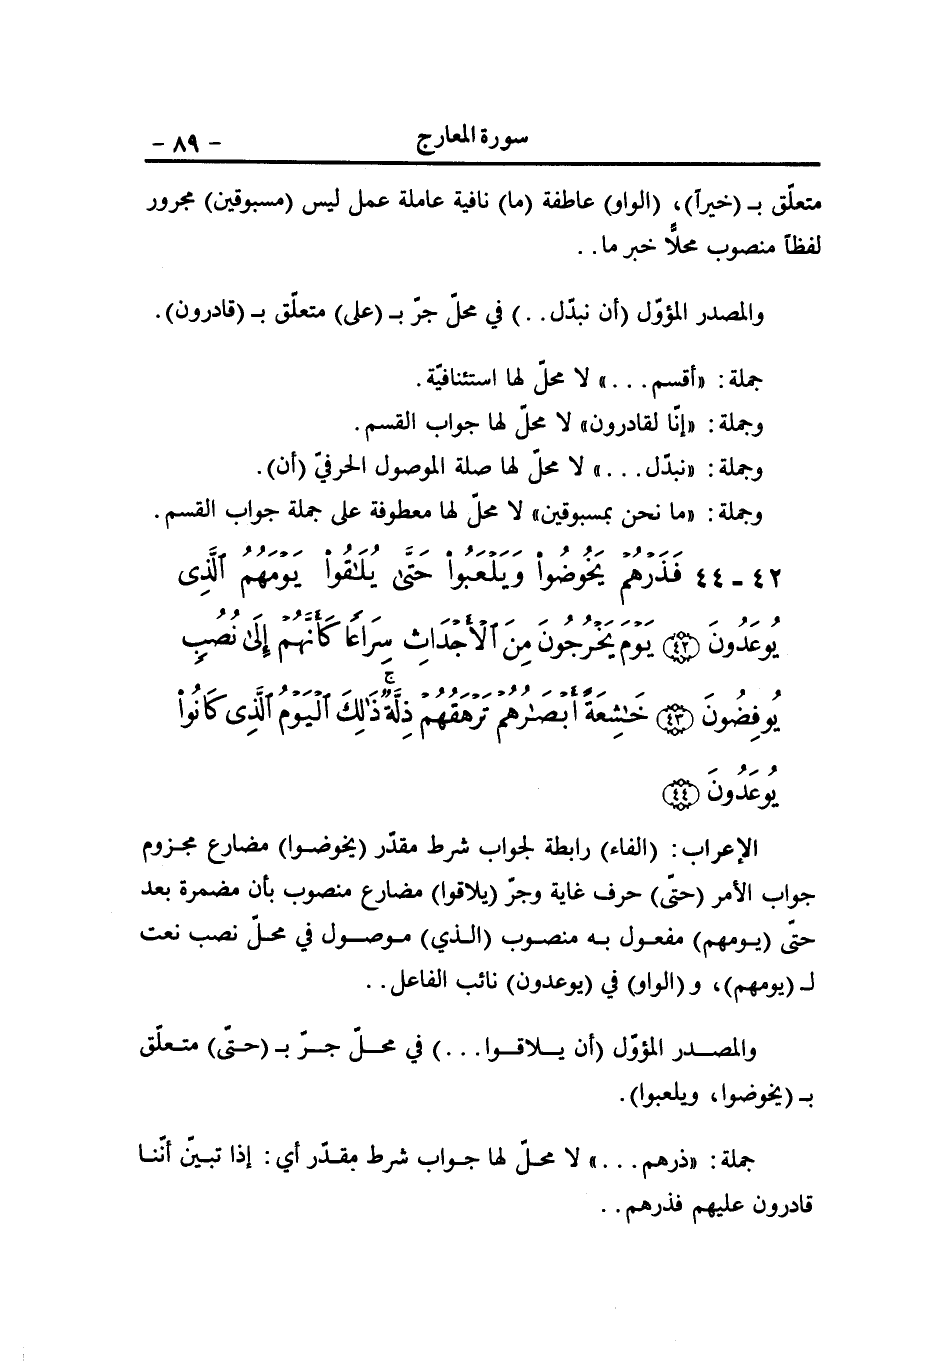 سورة المعارج - ٨٩ -
متعلّق بـ (خيراً)، (الواو) عاطفة (ما) نافية عاملة عمل ليس (مسبوقين) مجرور
لفظاً منصوب محلًّا خبر ما..
والمصدر المؤوّل (أن نبدّل..) في محلّ جرّ بـ (على) متعلّق بـ (قادرون).
جملة: «أقسم...» لا محلّ لها استئنافيّة.
وجملة: «إنّا لقادرون» لا محلّ لها جواب القسم.
وجملة: «نبدّل...» لا محلّ لها صلة الموصول الحرفيّ (أن).
وجملة: «ما نحن بمسبوقين» لا محلّ لها معطوفة على جملة جواب القسم.
٤٢ - ٤٤ فَذَرْهُمْ يَخُوضُواْ وَيَلْعَبُواْ حَتَّىٰ يُلَٰقُواْ يَوْمَهُمُ ٱلَّذِى
يُوعَدُونَ ﴿٤٢﴾ يَوْمَ يَخْرُجُونَ مِنَ ٱلْأَجْدَاثِ سِرَاعًا كَأَنَّهُمْ إِلَىٰ نُصُبٍ
يُوفِضُونَ ﴿٤٣﴾ خَٰشِعَةً أَبْصَٰرُهُمْ تَرْهَقُهُمْ ذِلَّةٌ ۚ ذَٰلِكَ ٱلْيَوْمُ ٱلَّذِى كَانُواْ
يُوعَدُونَ ﴿٤٤﴾
الإعراب: (الفاء) رابطة لجواب شرط مقدّر (يخوضوا) مضارع مجزوم
جواب الأمر (حتّى) حرف غاية وجرّ (يلاقوا) مضارع منصوب بأن مضمرة بعد
حتّى (يومهم) مفعول به منصوب (الذي) موصول في محلّ نصب نعت
لـ (يومهم)، و (الواو) في (يوعدون) نائب الفاعل..
والمصدر المؤوّل (أن يلاقوا...) في محلّ جرّ بـ (حتّى) متعلّق
بـ (يخوضوا، ويلعبوا).
جملة: «ذرهم...» لا محلّ لها جواب شرط مقدّر أي: إذا تبينّ أنّنا
قادرون عليهم فذرهم..